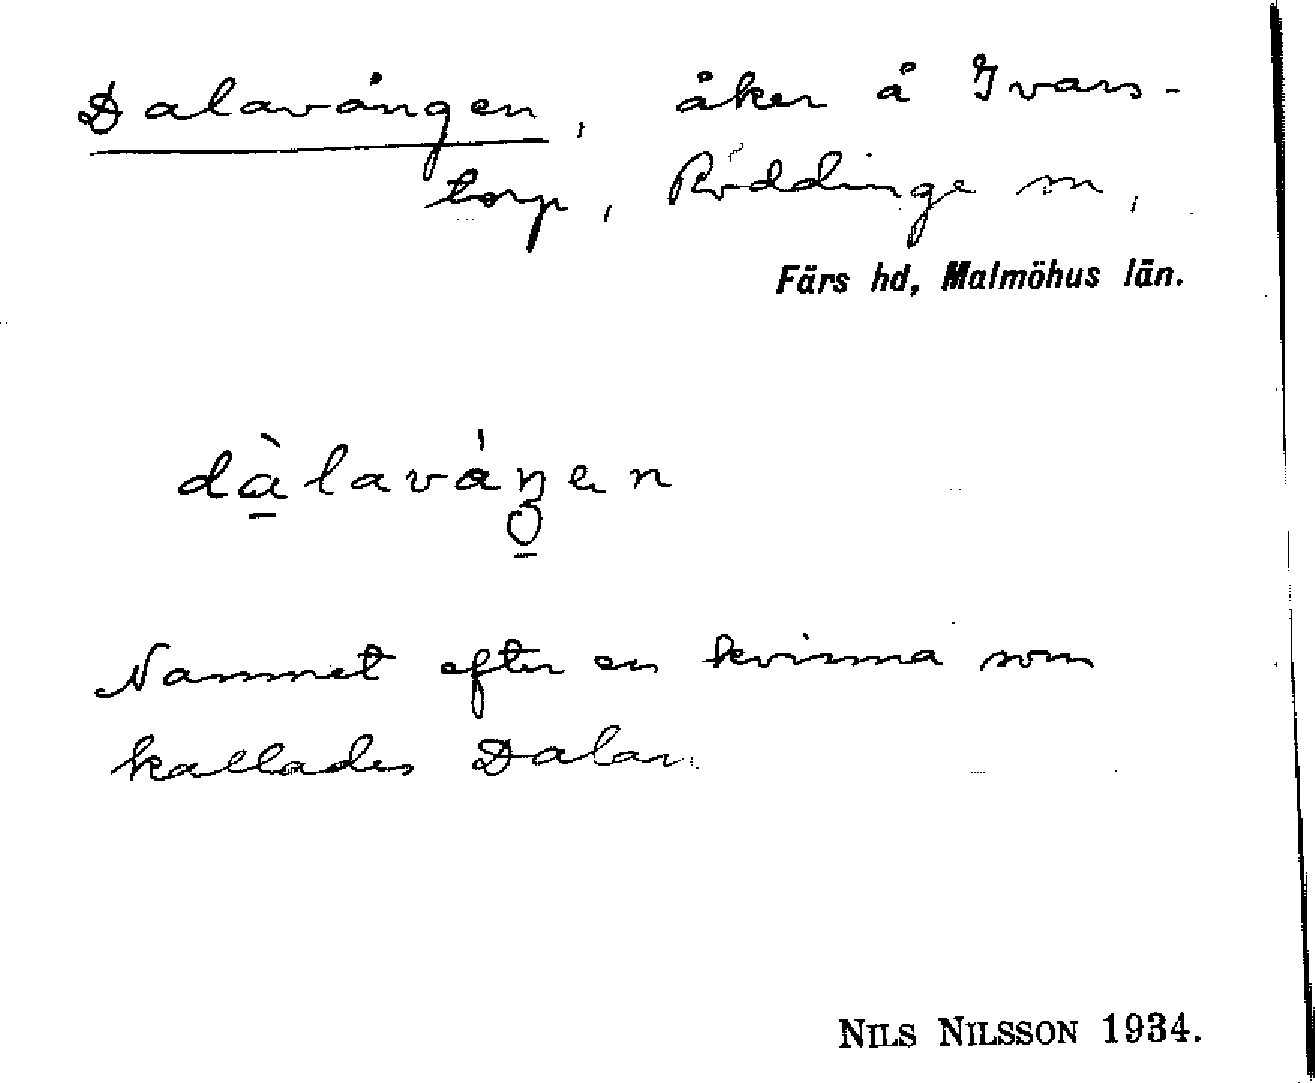 Dalavången, åker å Ivars-
torp, Röddinge sn,
Färs hd, Malmöhus län.
dàlaváŋen
Namnet efter en kvinna som
kallades Dalan.
NILS NILSSON 1934.